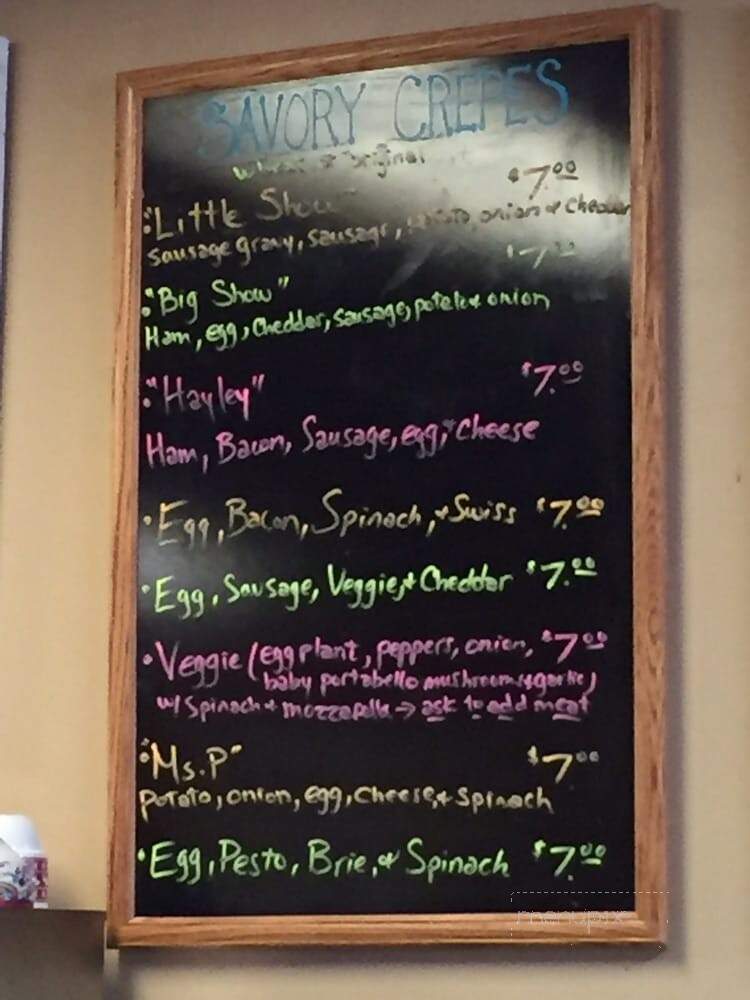 SAVORY CREPES
wheat or original
"Little Show" $7.00
sausage gravy, sausage, potato, onion & Cheddar
$7.00
"Big Show"
Ham, egg, Cheddar, sausage, potato & onion
"Hayley" $7.00
Ham, Bacon, Sausage, egg, & Cheese
• Egg, Bacon, Spinach, & Swiss $7.00
• Egg, Sausage, Veggie, & Cheddar $7.00
• Veggie (eggplant, peppers, onion, $7.00
baby portabello mushrooms & garlic)
w/ Spinach & mozzarella → ask to add meat
"Ms. P" $7.00
potato, onion, egg, cheese, & Spinach
• Egg, Pesto, Brie, & Spinach $7.00
menupix